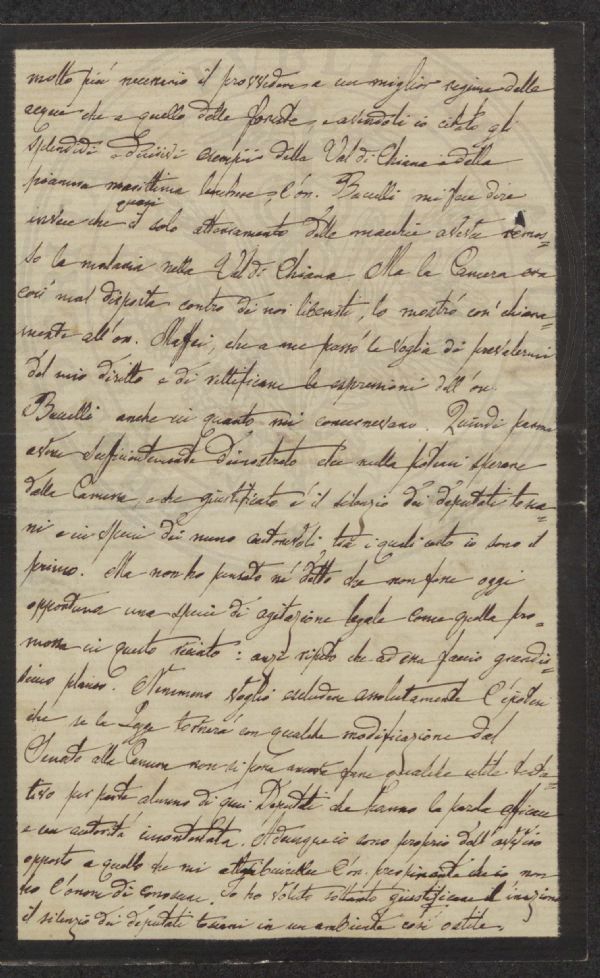 molto più necessario il provvedere a un miglior regime delle
acque che a quello delle foreste, e avendoti io citato gli
splendidi e decisivi esempii della Val di Chiana e della
pianura marittima lucchese, l'on. Baccelli mi fece dire
invece che quasi il solo atterramento delle macchie avesse remos=
so la malaria nella Val di Chiana. Ma la Camera era
così mal disposta contro di noi liberisti, lo mostrò così chiara=
mente all'on. Maffei, che a me passò la voglia di prevalermi
del mio diritto e di rettificare le espressioni dell'on.
Baccelli anche in quanto mi concernevano. Quindi parmi
avere sufficientemente dimostrato che nulla potevasi sperare
dalla Camera, e che giustificato è il silenzio dei deputati tosca=
ni e in specie dei meno autorevoli tra i quali certo io sono il
primo. Ma non ho pensato nè detto che non fosse oggi
opportuna una specie di agitazione legale come quella pro=
mossa in questo senato: anzi ripeto che ad essa faccio grandis=
simo plauso. Nemmeno voglio escludere assolutamente l'ipotesi
che se la Legge tornerà con qualche modificazione dal
Senato alla Camera non si possa ancora fare qualche utile tenta=
tivo per parte almeno di quei Deputati che hanno la parola efficace
e un autorità incontestata. Adunque io sono proprio dell'avviso
opposto a quello che mi attribuirebbe l'on. preopinante che io non
ho l'onore di conoscere. Io ho voluto soltanto giustificare l'inazione
il silenzio dei deputati toscani in un ambiente così ostile.